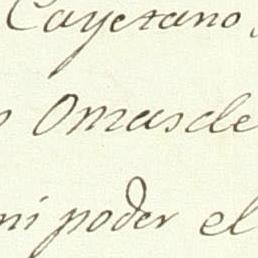 Cayetano
Omasde
mi poder el